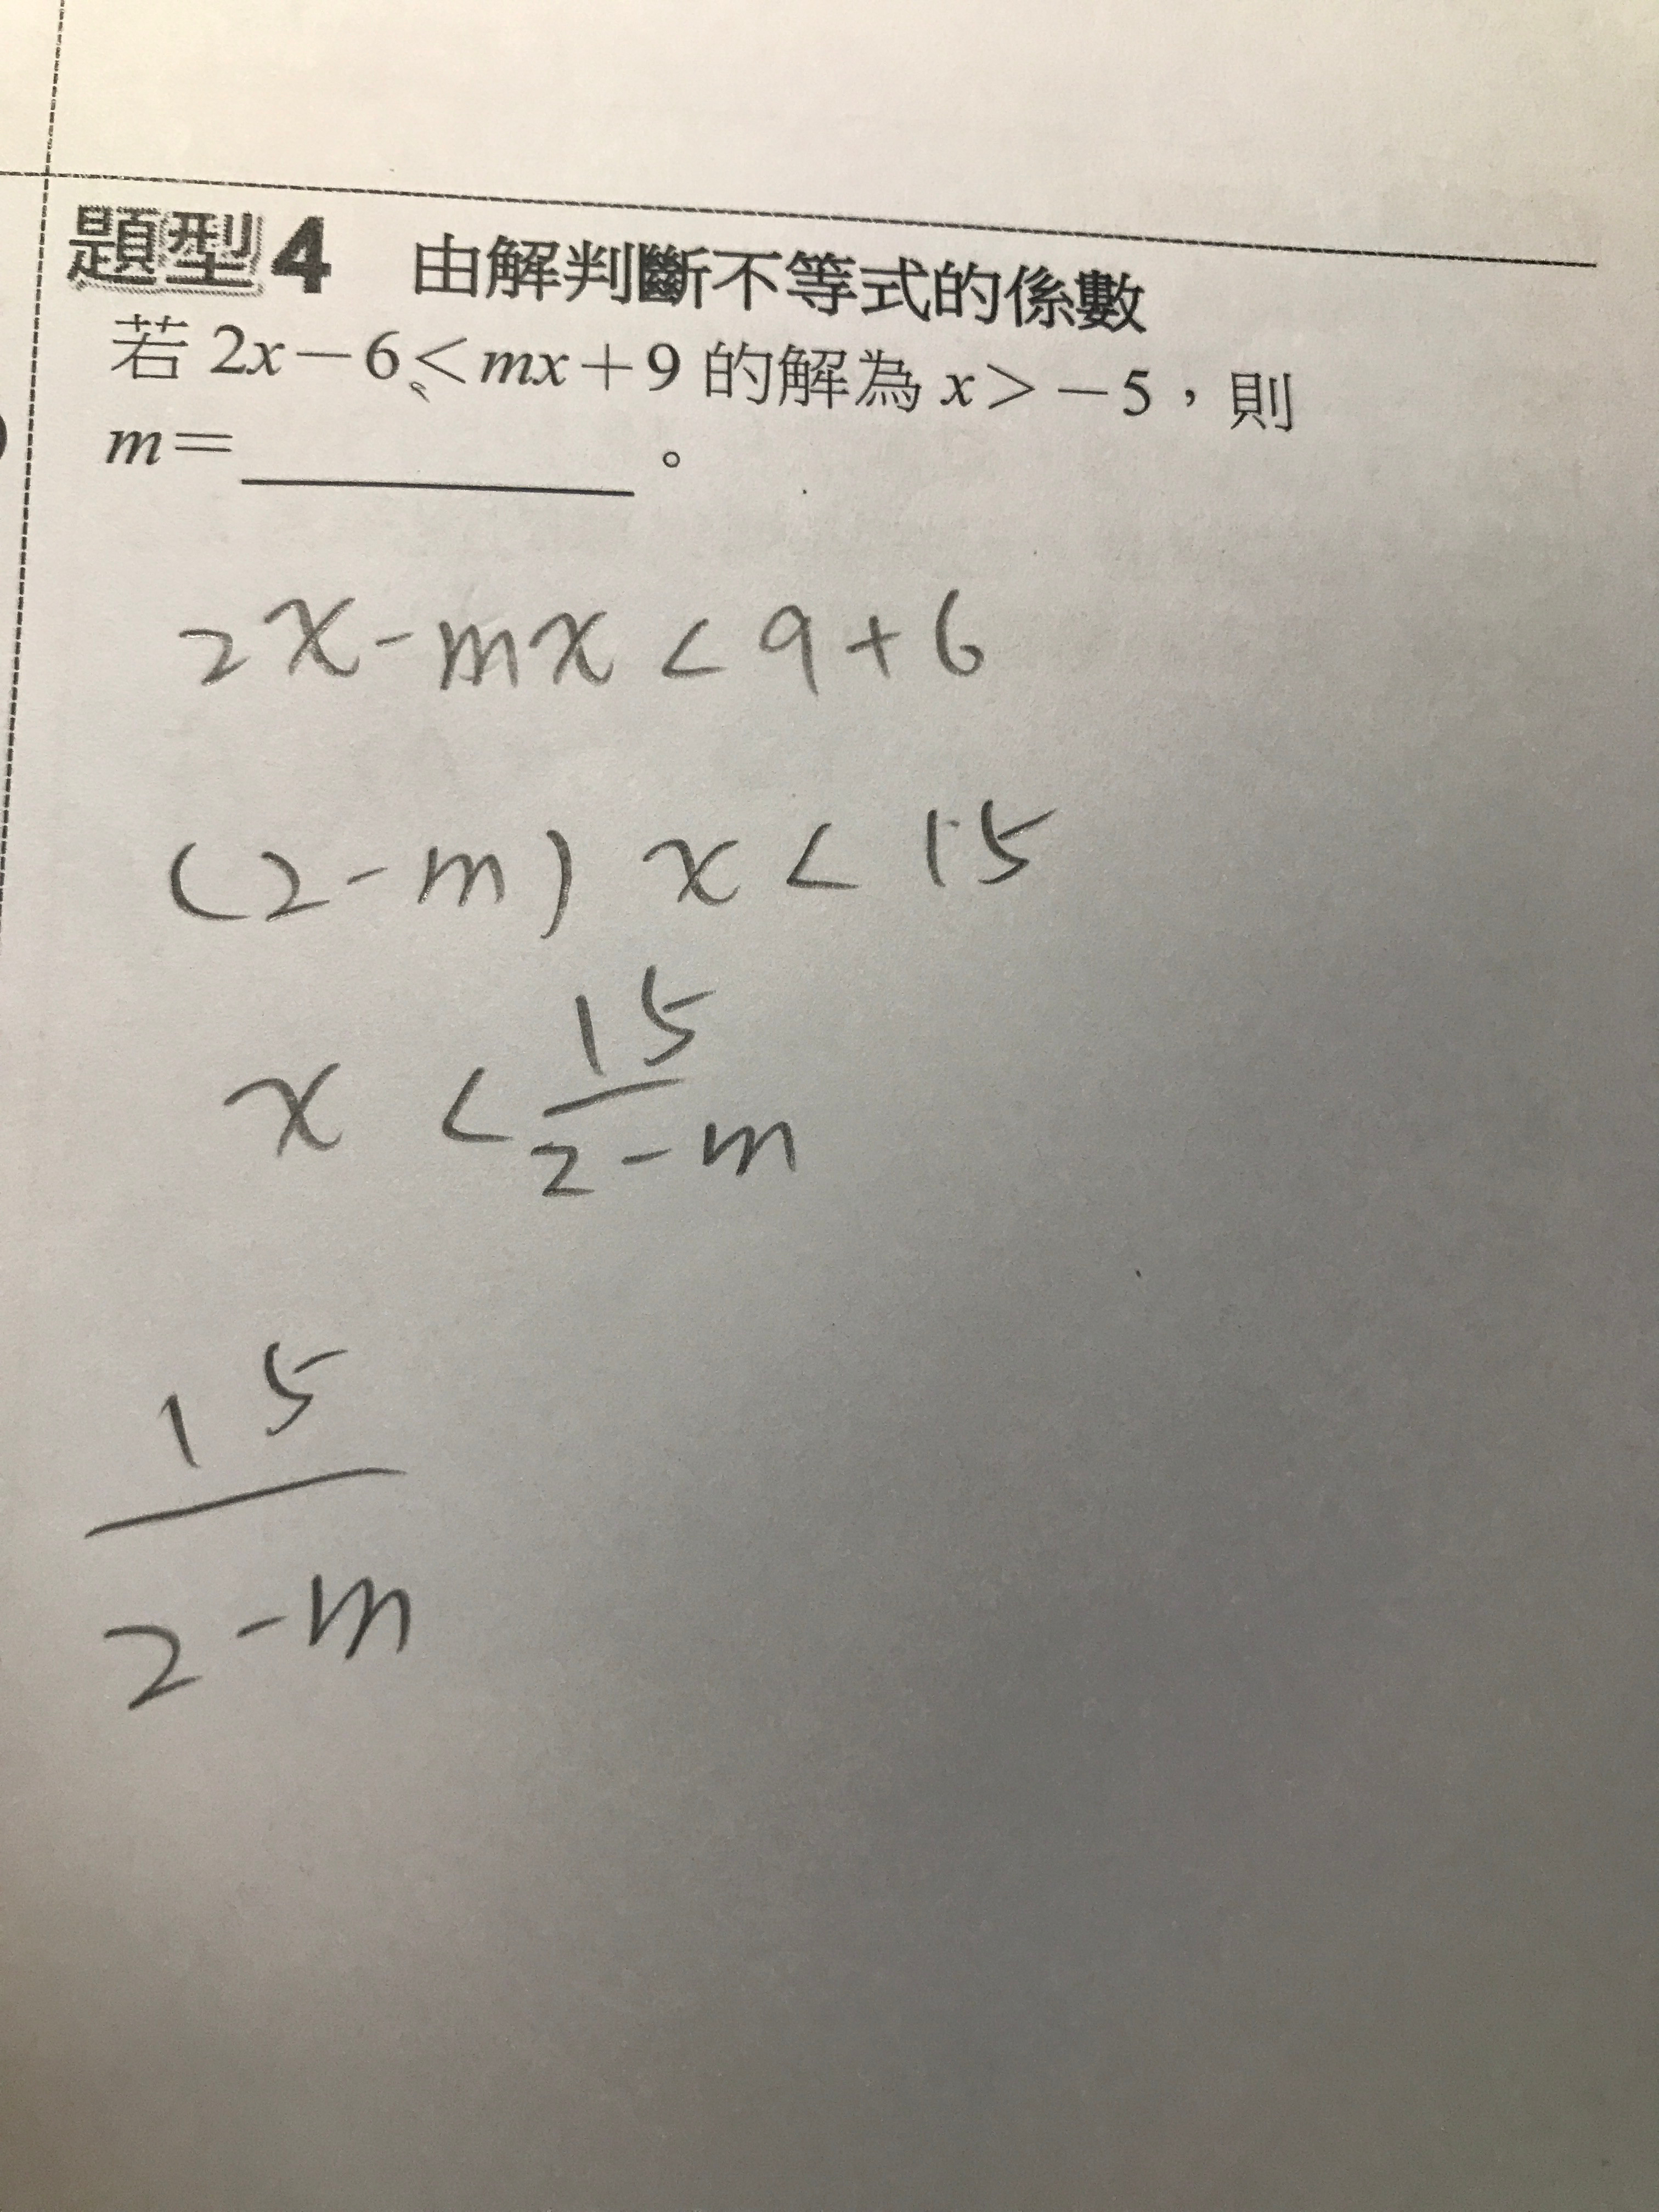 題型4 由解判斷不等式的係數
若 2x－6＜mx＋9 的解為 x＞－5，則
m＝＿＿＿＿＿＿。
2x-mx<9+6
(2-m) x<15
x < 15/2-m
15
2-m